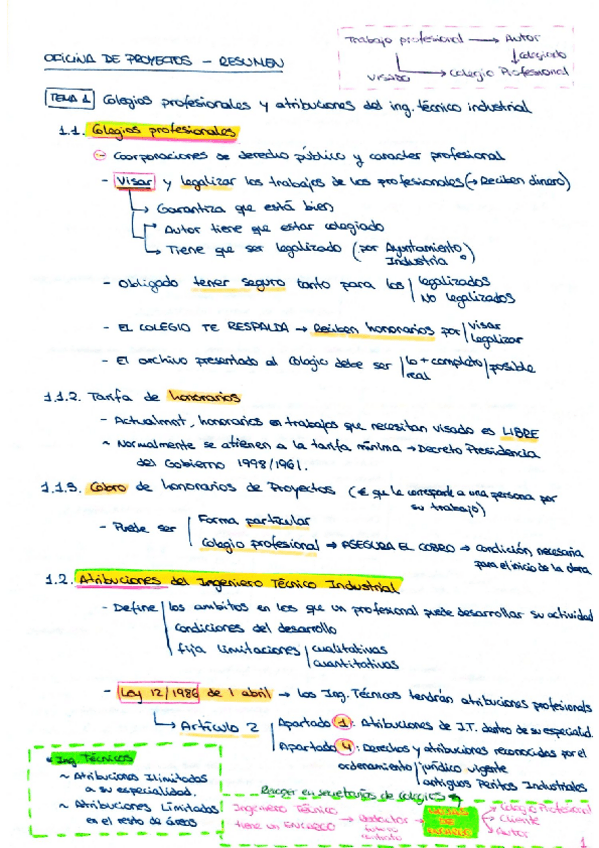 OFICINA DE PROYECTOS - RESUMEN
Trabajo profesional → Autor
↓ colegiado
VISADO → Colegio Profesional
TEMA 1 Colegios profesionales y atribuciones del ing. técnico industrial
1.1. Colegios profesionales
- Corporaciones de derecho público y caracter profesional
- Visar y legalizar los trabajos de los profesionales (→ Reciben dinero)
→ Garantiza que está bien
→ Autor tiene que estar colegiado
→ Tiene que ser legalizado (por Ayuntamiento,
Industria)
- Obligado tener seguro tanto para los | legalizados
NO legalizados
- EL COLEGIO TE RESPALDA → Reciben honorarios por | visar
legalizar
- El archivo presentado al colegio debe ser | lo + completo | posible
real
1.1.2. Tarifa de honorarios
- Actualmnt, honorarios en trabajos que necesitan visado es LIBRE
~ Normalmente se atienen a la tarifa mínima → Decreto Presidencia
del Gobierno 1998/1961.
1.1.3. Cobro de honorarios de Proyectos (€ que le corresponde a una persona por
su trabajo)
- Puede ser | Forma particular
Colegio profesional → ASEGURA EL COBRO → condición necesaria
para el inicio de la obra
1.2. Atribuciones del Ingeniero Técnico Industrial
- Define | los ambitos en los que un profesional puede desarrollar su actividad
condiciones del desarrollo
fija limitaciones | cualitativas
cuantitativas
- Ley 12/1986 de 1 abril → los Ing. Técnicos tendrán atribuciones profesionals
→ Artículo 2 | Apartado 1: Atribuciones de I.T. dentro de su especialid.
Apartado 4: Derechos y atribuciones reconocidas por el
ordenamiento | jurídico vigente
antiguos Peritos Industriales
* Ing. Técnicos
~ Atribuciones Ilimitadas
a su especialidad.
~ Atribuciones Limitadas
en el resto de áreas
Recoger en secretarías de colegios
Ingeniero Técnico
tiene un ENCARGO
→ Colegio Profesional
→ Cliente
→ Autor
1